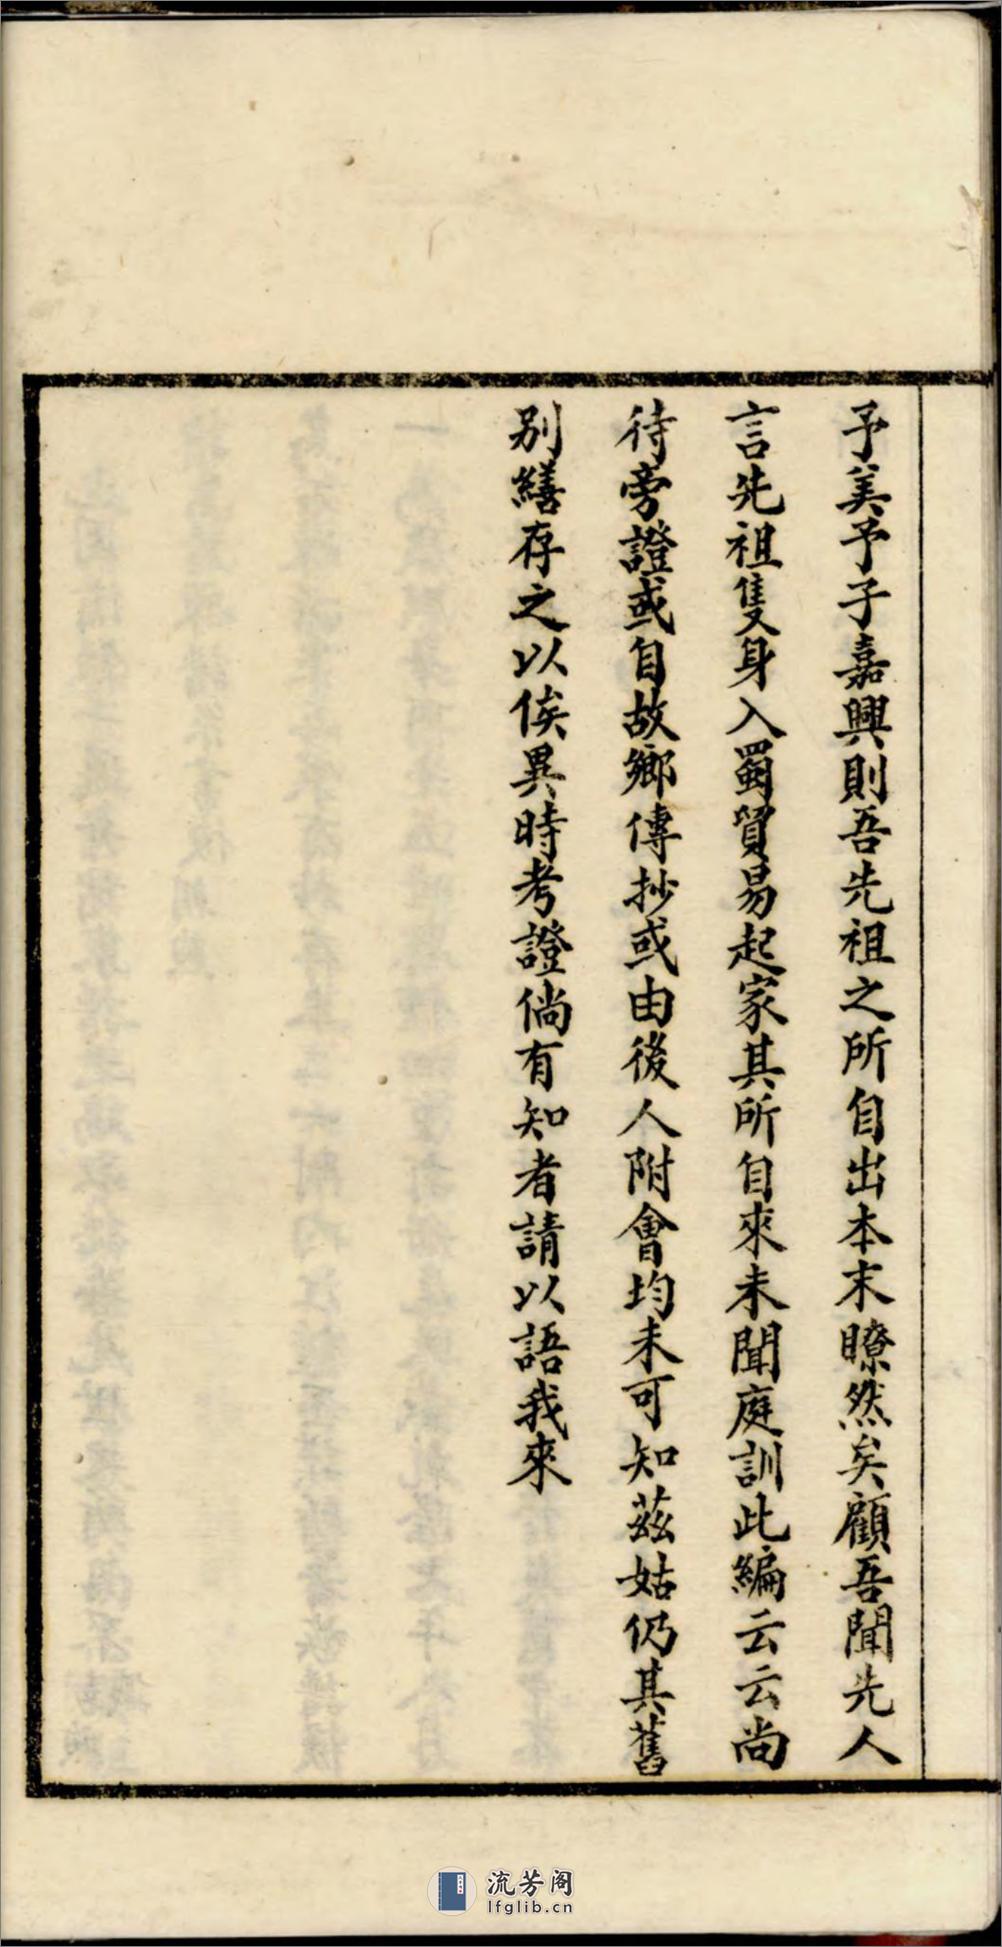 予美予子嘉興則吾先祖之所自出本末瞭然矣顧吾聞先人
言先祖隻身入蜀貿易起家其所自來未聞庭訓此編云云尚
待旁證或自故鄉傳抄或由後人附會均未可知茲姑仍其舊
别繕存之以俟異時考證倘有知者請以語我來
流芳阁
lfglib.cn